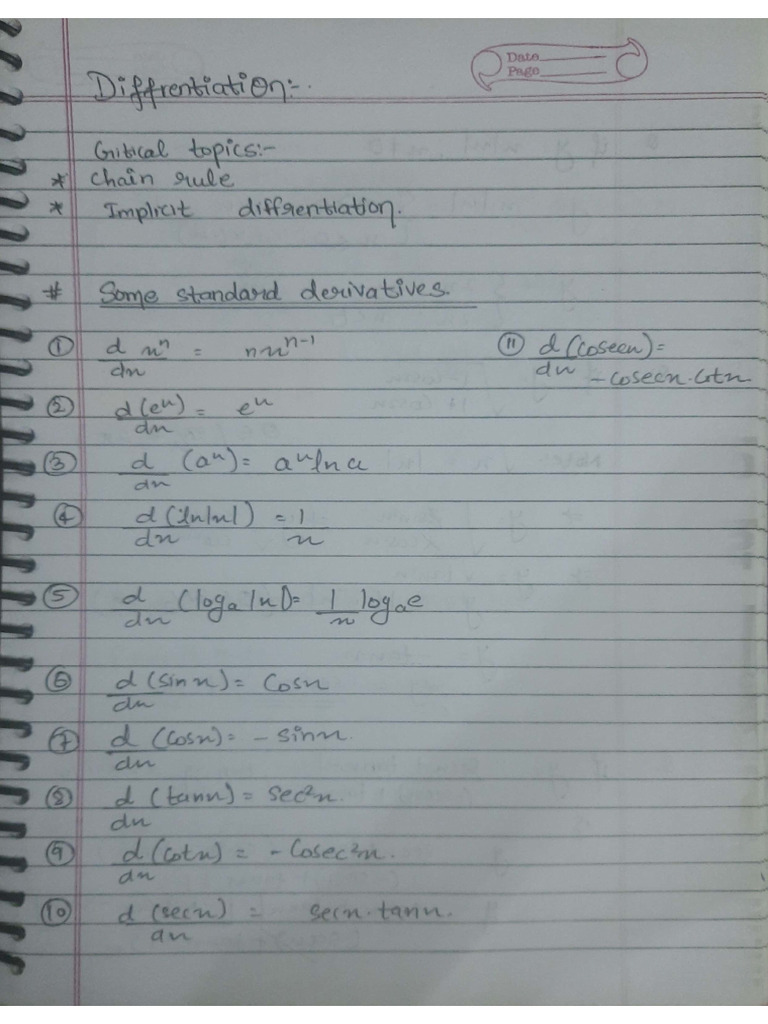 Date
Page
Diffrentiation:-
Critical topics:-
* Chain rule
* Implicit diffrentiation.
# Some standard derivatives.
① d/dx xⁿ = nxⁿ⁻¹
⑪ d/dx (cosecx) = - cosecx.cotx
② d(eˣ)/dx = eˣ
③ d/dx (aˣ) = aˣ ln a
④ d/dx (ln|x|) = 1/x
⑤ d/dx (logₐ|x|) = 1/x logₐe
⑥ d/dx (sin x) = Cosx
⑦ d/dx (Cosx) = - sinx.
⑧ d/dx (tanx) = sec²x.
⑨ d/dx (cotx) = - Cosec²x.
⑩ d/dx (secx) = secx.tanx.